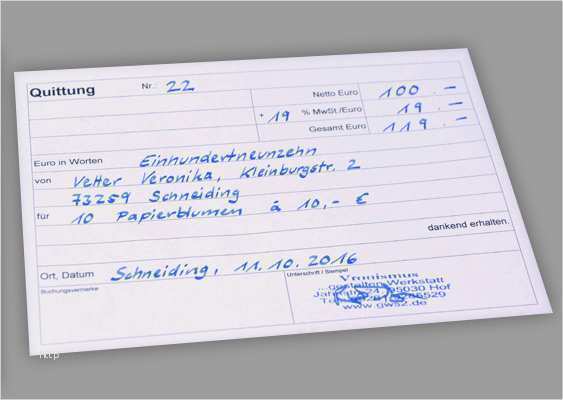 Quittung Nr.: 22
Netto Euro 100.-
+ 19 % MwSt./Euro 19.-
Gesamt Euro 119.-
Euro in Worten Einhundertneunzehn
von Vetter Veronika, Kleinburgstr. 2
73259 Schneiding
für 10 Papierblumen á 10,- €
dankend erhalten.
Ort, Datum Schneiding, 11.10.2016
Buchungsvermerke
Unterschrift / Stempel
Vronismus
Werkstatt
95030 Hof
www.gws2.de